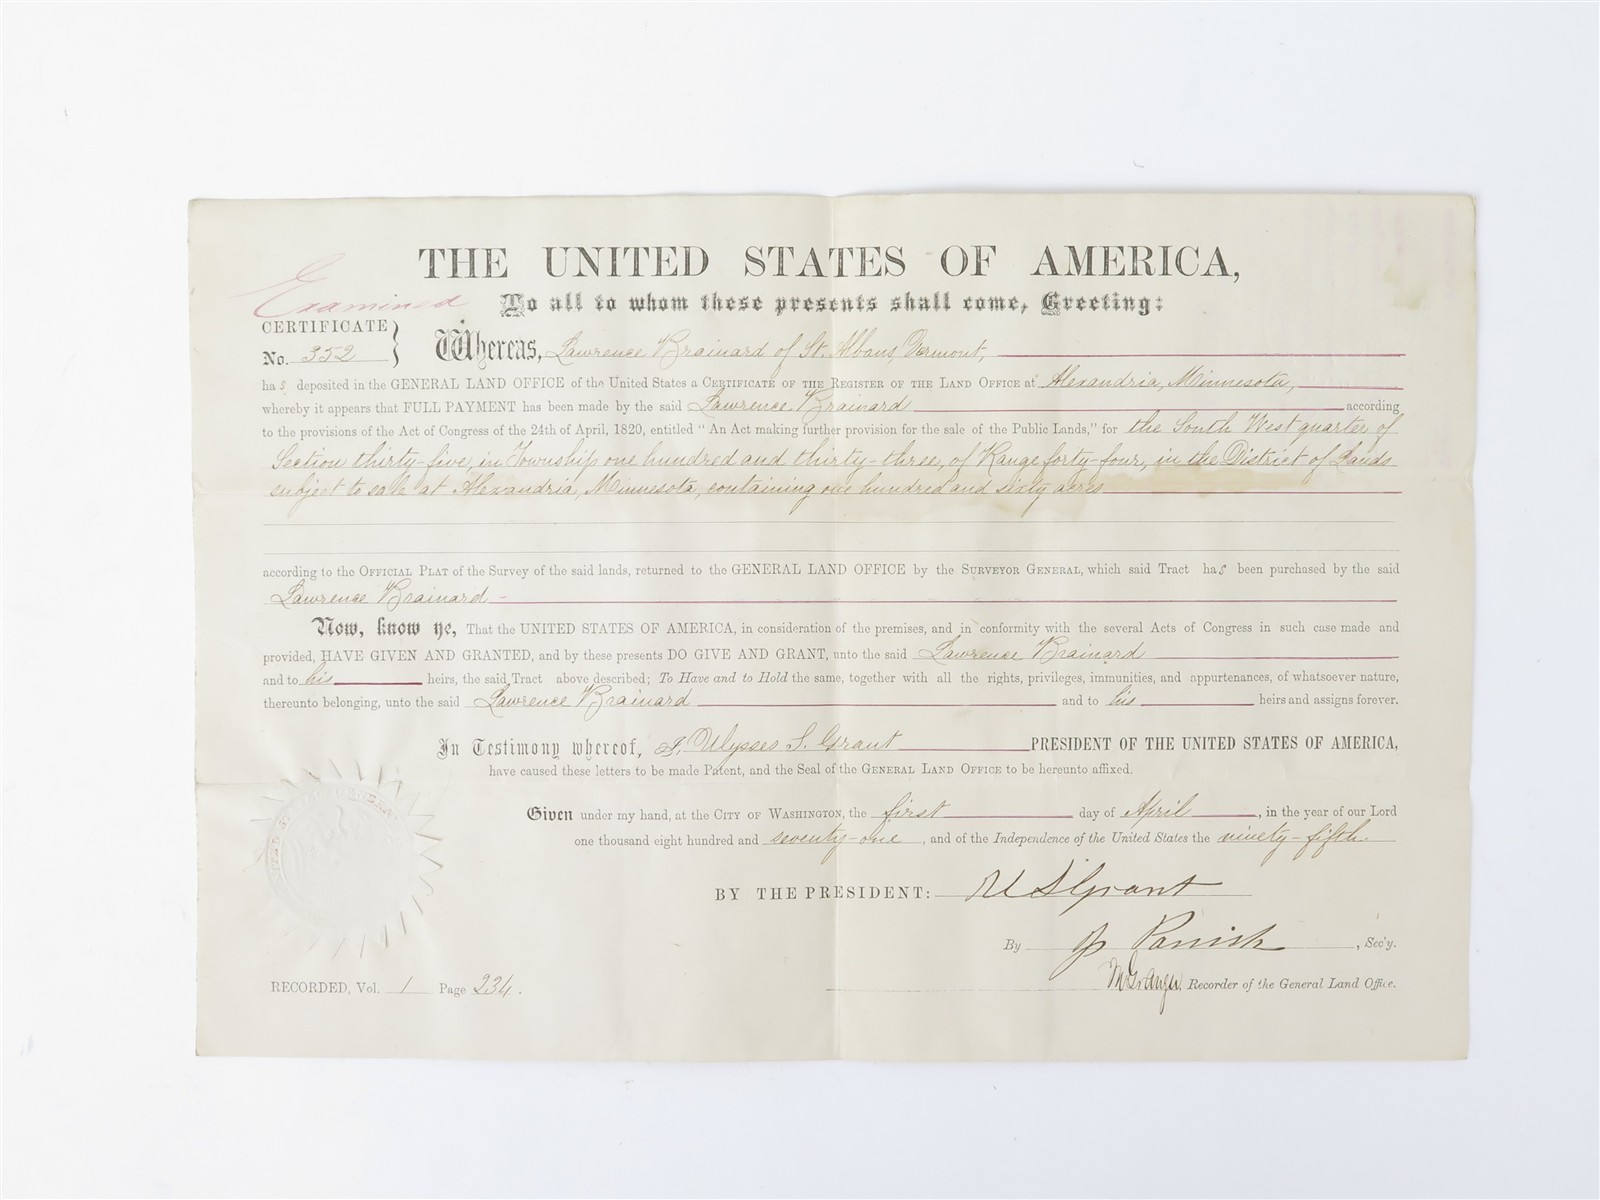 THE UNITED STATES OF AMERICA,
To all to whom these presents shall come, Greeting:
Examined
CERTIFICATE
No. 352
Whereas, Lawrence Brainard of St. Albans, Vermont,
has deposited in the GENERAL LAND OFFICE of the United States a CERTIFICATE OF THE REGISTER OF THE LAND OFFICE at Alexandria, Minnesota,
whereby it appears that FULL PAYMENT has been made by the said Lawrence Brainard according
to the provisions of the Act of Congress of the 24th of April, 1820, entitled "An Act making further provision for the sale of the Public Lands," for the South West quarter of
Section thirty-five, in Township one hundred and thirty-three, of Range forty-four, in the District of Lands
subject to sale at Alexandria, Minnesota, containing one hundred and sixty acres
according to the OFFICIAL PLAT of the Survey of the said lands, returned to the GENERAL LAND OFFICE by the SURVEYOR GENERAL, which said Tract has been purchased by the said
Lawrence Brainard -
Now, know ye, That the UNITED STATES OF AMERICA, in consideration of the premises, and in conformity with the several Acts of Congress in such case made and
provided, HAVE GIVEN AND GRANTED, and by these presents DO GIVE AND GRANT, unto the said Lawrence Brainard
and to his heirs, the said Tract above described; To Have and to Hold the same, together with all the rights, privileges, immunities, and appurtenances, of whatsoever nature,
thereunto belonging, unto the said Lawrence Brainard and to his heirs and assigns forever.
In Testimony whereof, I, Ulysses S. Grant PRESIDENT OF THE UNITED STATES OF AMERICA,
have caused these letters to be made Patent, and the Seal of the GENERAL LAND OFFICE to be hereunto affixed.
Given under my hand, at the CITY OF WASHINGTON, the first day of April, in the year of our Lord
one thousand eight hundred and seventy-one, and of the Independence of the United States the ninety-fifth.
BY THE PRESIDENT: U S Grant
By Parrish, Sec'y.
RECORDED, Vol. 1 Page 234. Recorder of the General Land Office.